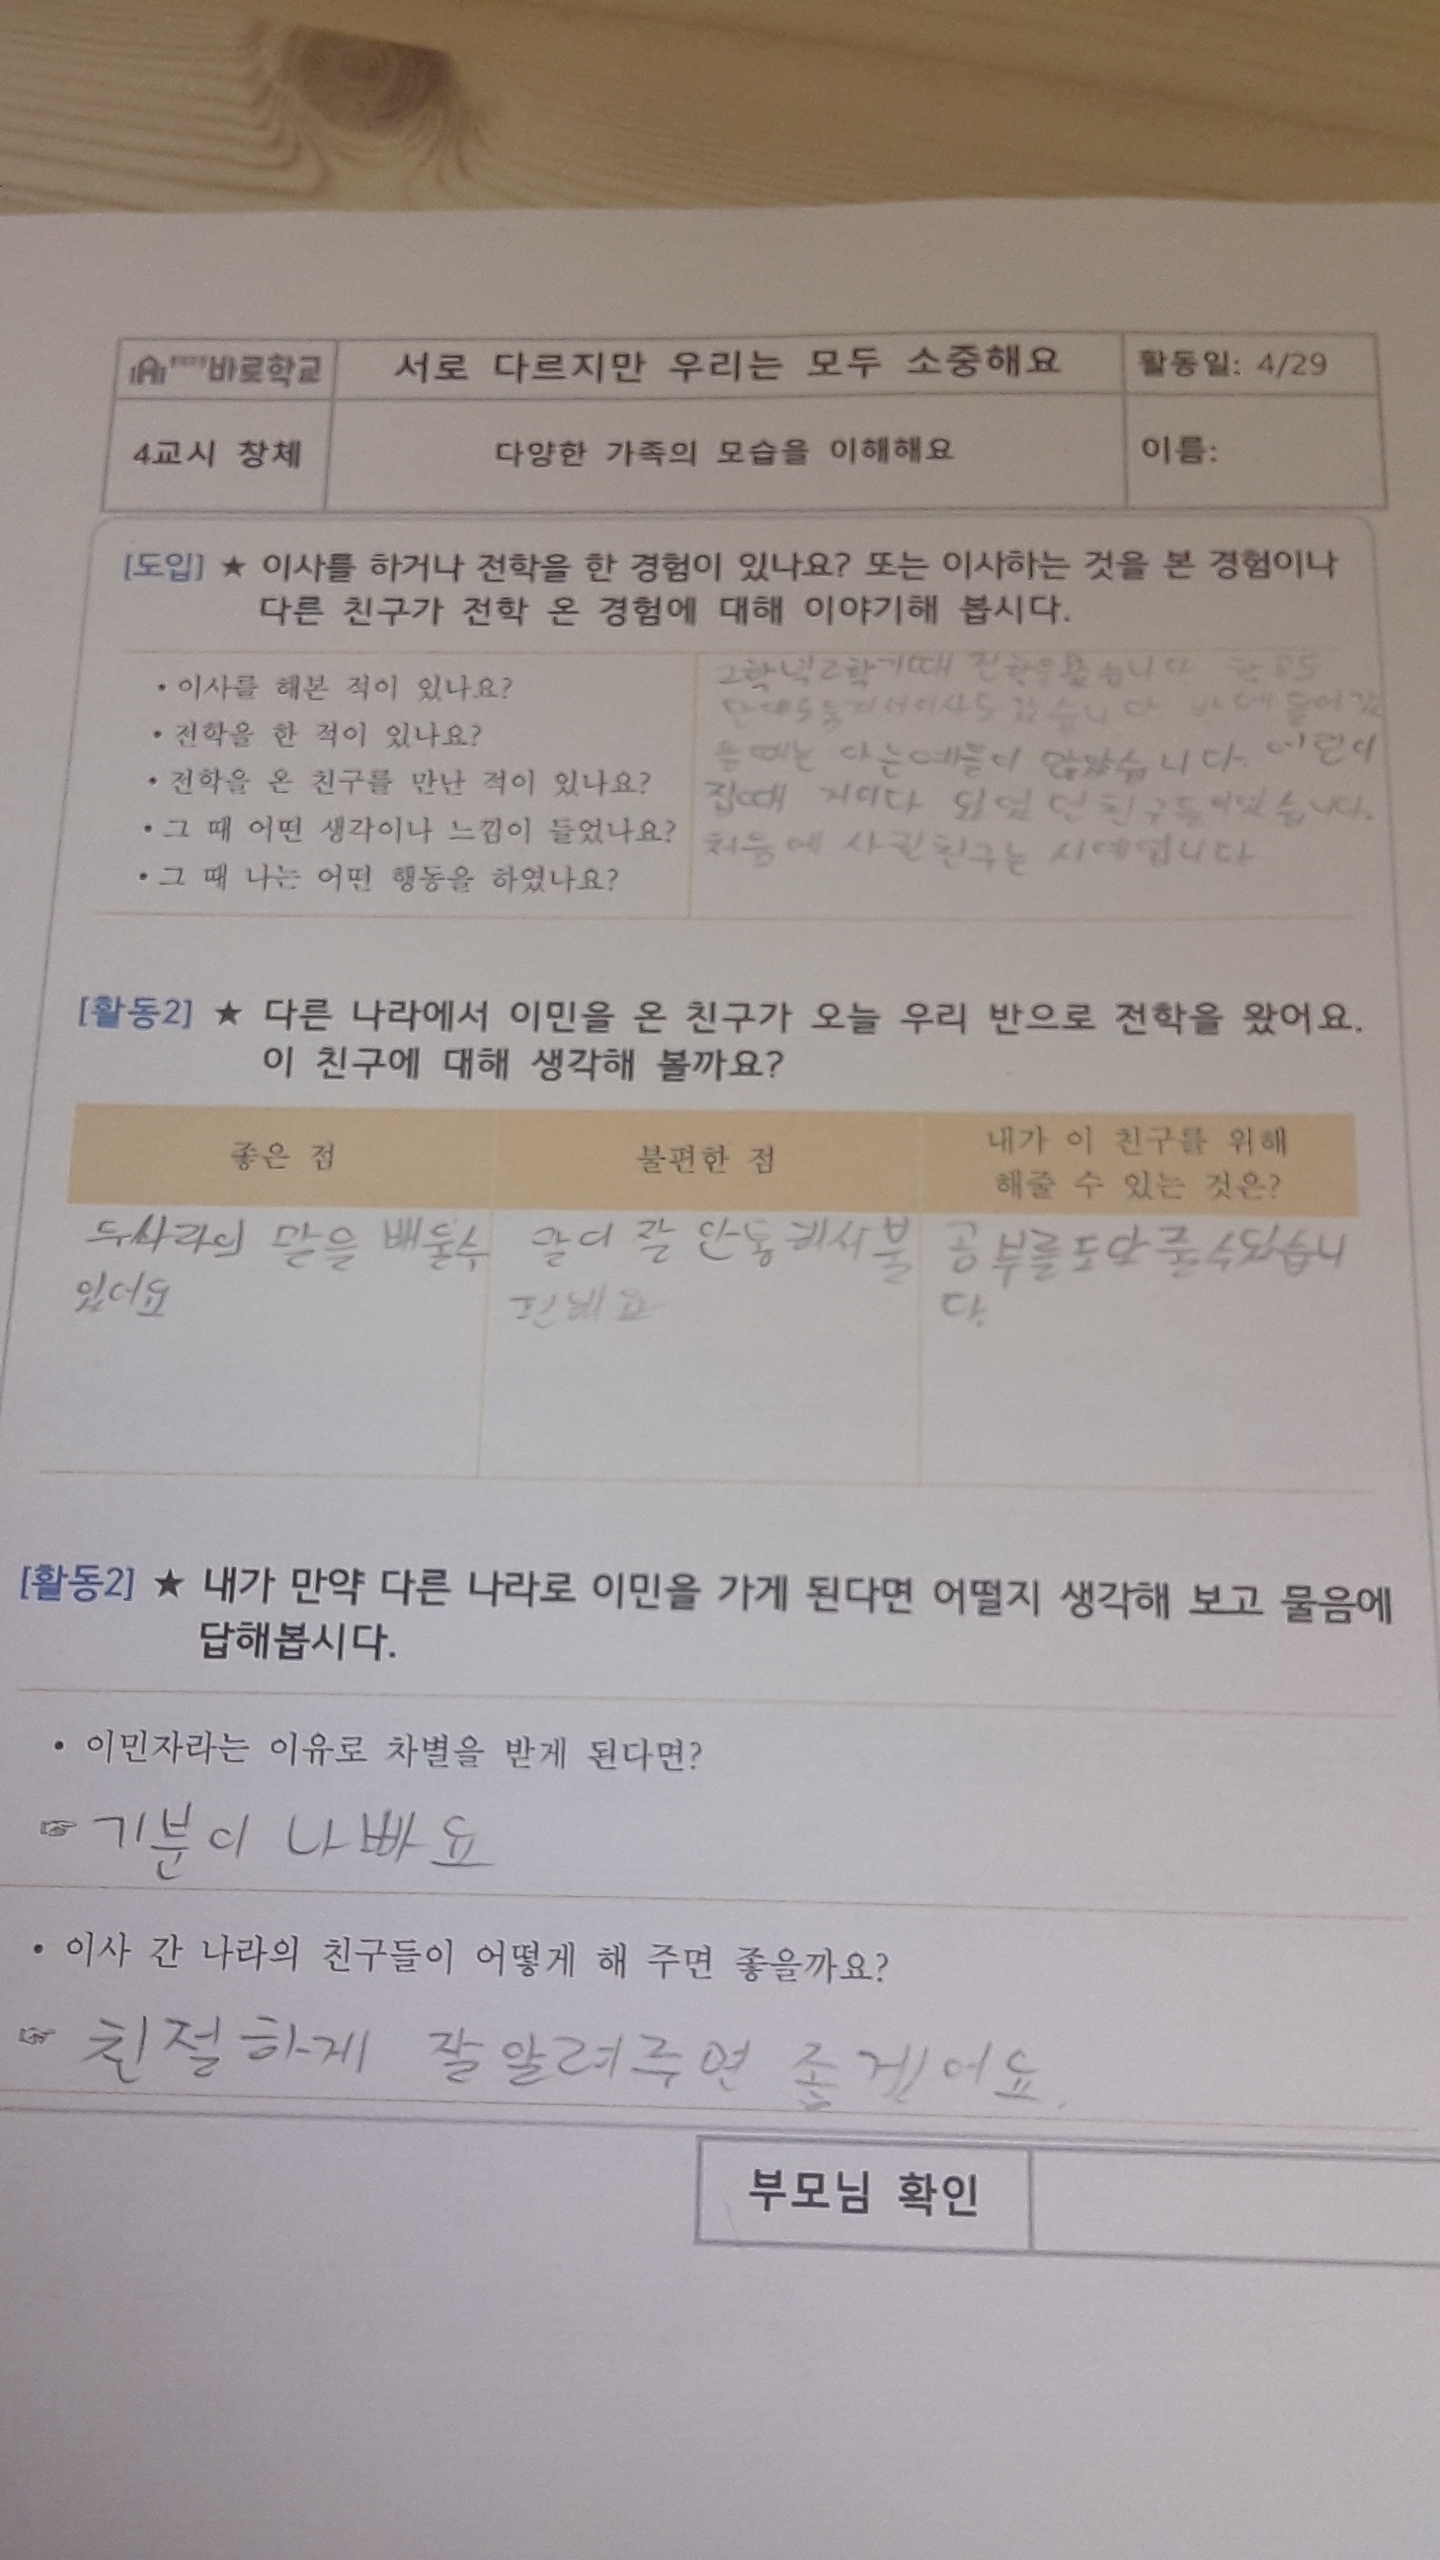 바로학교
서로 다르지만 우리는 모두 소중해요
활동일: 4/29
4교시 창체
다양한 가족의 모습을 이해해요
이름:
[도입] ★ 이사를 하거나 전학을 한 경험이 있나요? 또는 이사하는 것을 본 경험이나
다른 친구가 전학 온 경험에 대해 이야기해 봅시다.
• 이사를 해본 적이 있나요?
• 전학을 한 적이 있나요?
• 전학을 온 친구를 만난 적이 있나요?
• 그 때 어떤 생각이나 느낌이 들었나요?
• 그 때 나는 어떤 행동을 하였나요?
2학기때 전학을 학교도
을때는 아는예들이 많았습니다. 어린이
집때 친구들이였습니다.
처음에 사귄친구는 시예입니다
[활동2] ★ 다른 나라에서 이민을 온 친구가 오늘 우리 반으로 전학을 왔어요.
이 친구에 대해 생각해 볼까요?
좋은 점
불편한 점
내가 이 친구를 위해
해줄 수 있는 것은?
말을 배울수
있어요
말이 잘 안통해서불
편해요
공부를도와줄수있습니
다.
[활동2] ★ 내가 만약 다른 나라로 이민을 가게 된다면 어떨지 생각해 보고 물음에
답해봅시다.
• 이민자라는 이유로 차별을 받게 된다면?
☞ 기분이 나빠요
• 이사 간 나라의 친구들이 어떻게 해 주면 좋을까요?
☞ 친절하게 잘알려주면 좋겠어요.
부모님 확인